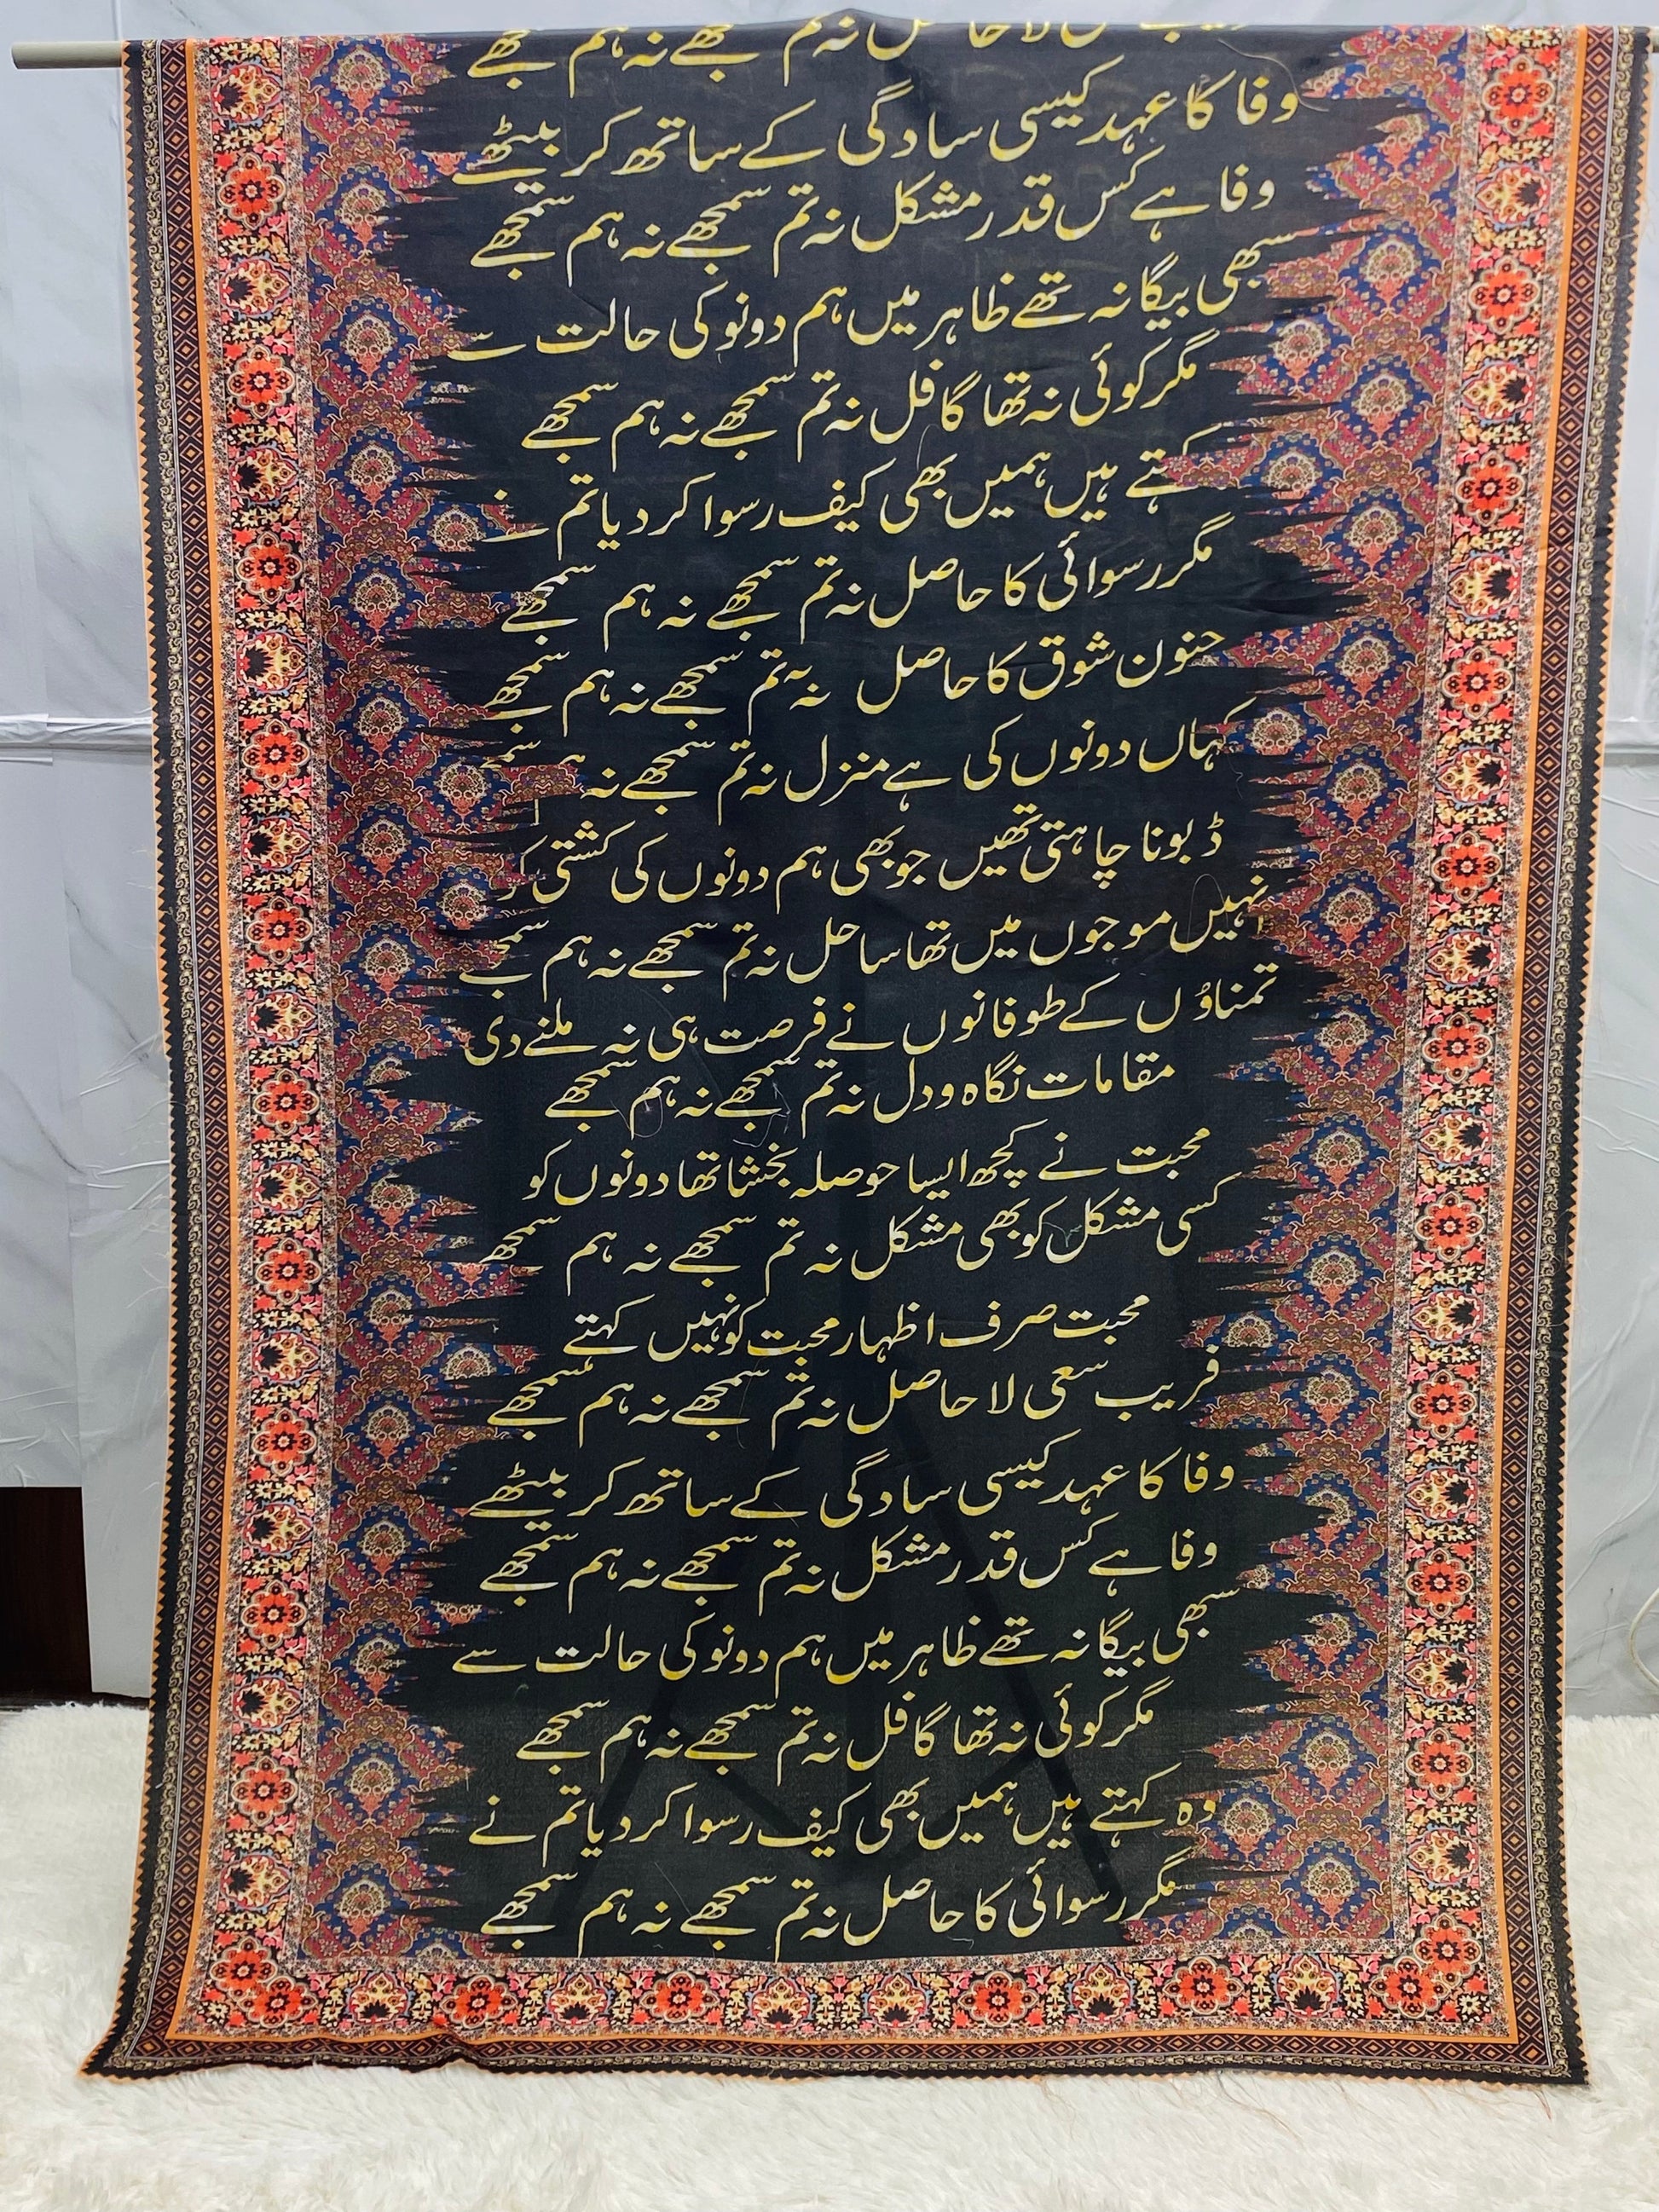 لا حاصل نہ تم سمجھے نہ ہم سمجھے
وفا کا عہد کیسی سادگی کے ساتھ کر بیٹھے
وفا ہے کس قدر مشکل نہ تم سمجھے نہ ہم سمجھے
سبھی بیگانہ تھے ظاہر میں ہم دونو کی حالت سے
مگر کوئی نہ تھا گافل نہ تم سمجھے نہ ہم سمجھے
کہتے ہیں ہمیں بھی کیف رسوا کر دیا تم نے
مگر رسوائی کا حاصل نہ تم سمجھے نہ ہم سمجھے
جنون شوق کا حاصل نہ تم سمجھے نہ ہم سمجھے
کہاں دونوں کی ہے منزل نہ تم سمجھے نہ
ڈبونا چاہتی تھیں جو بھی ہم دونوں کی کشتی
نہیں موجوں میں تھا ساحل نہ تم سمجھے نہ ہم سمجھے
تمناؤں کے طوفانوں نے فرصت ہی نہ ملنے دی
مقامات نگاہ و دل نہ تم سمجھے نہ ہم سمجھے
محبت نے کچھ ایسا حوصلہ بخشا تھا دونوں کو
کسی مشکل کو بھی مشکل نہ تم سمجھے نہ ہم سمجھے
محبت صرف اظہار محبت کو نہیں کہتے
فریب سعی لا حاصل نہ تم سمجھے نہ ہم سمجھے
وفا کا عہد کیسی سادگی کے ساتھ کر بیٹھے
وفا ہے کس قدر مشکل نہ تم سمجھے نہ ہم سمجھے
سبھی بیگانہ تھے ظاہر میں ہم دونو کی حالت سے
مگر کوئی نہ تھا گافل نہ تم سمجھے نہ ہم سمجھے
وہ کہتے ہیں ہمیں بھی کیف رسوا کر دیا تم نے
مگر رسوائی کا حاصل نہ تم سمجھے نہ ہم سمجھے